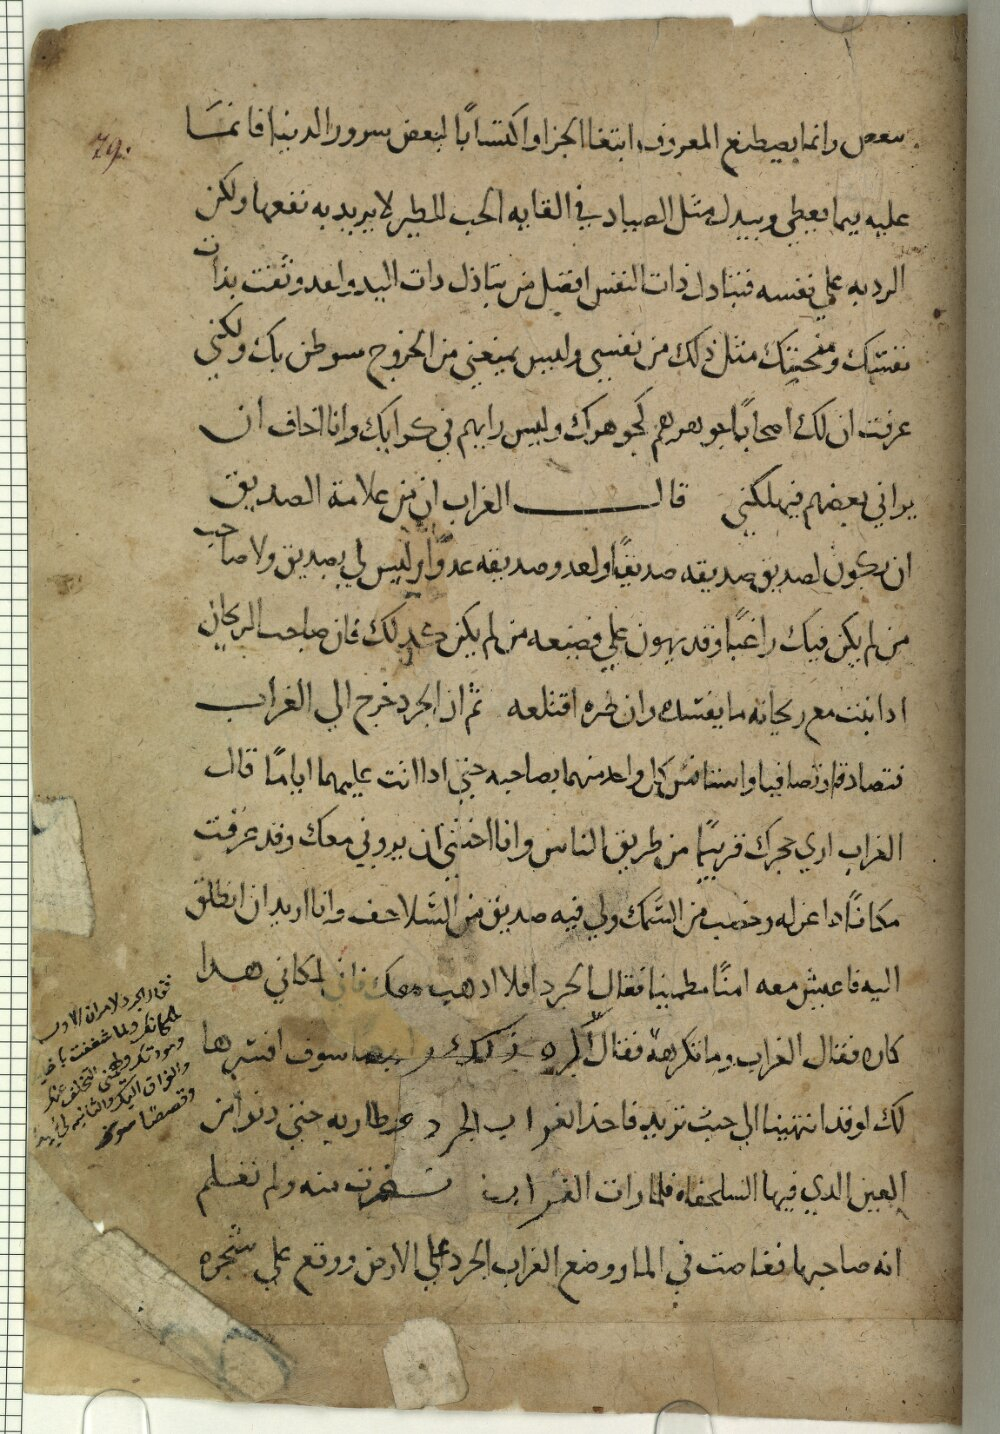 79.
ببعض وانما يصطنع المعروف ابتغا الجزا او اكتسابا لبعض سرور الدنيا فانما
عليه بيما يعطي ويبدل مثل الصياد في القايه الحب للطير لا يريد به نفعها ولكن
الرد به علي نفسه فتبادل ذات النفس افضل من تباذل ذات اليد ولقد وثقت بذات
نفسك ومنحتك مثل ذلك من نفسي وليس يمنعني من الخروج سو ظن بك ولكني
عرفت ان لك اصحابا جوهرهم كجوهرك وليس رايهم في كرايك وانا اخاف ان
يراني بعضهم فيهلكني قال الغراب ان من علامة الصديق
ان يكون لصديق صديقه صديقا ولعدو صديقه عدوا وليس لي بصديق ولا صاحب
من لم يكن فيك راغبا وقد يهون علي قطيعه من لم يكن كذلك فان صاحب الريحان
ادا نبت مع ريحانه ما يفسده وان ضره اقتلعه ثم ان الجرد خرج الي الغراب
فتصادقا وتصافيا واستانس كل واحد منهما بصاحبه حتي ادا اتت عليهما اياما قال
الغراب اري جحرك قريبا من طريق الناس وانا اخشي ان يروني معك وقد عرفت
مكانا دا عزله وخصب من السمك ولي فيه صديق من السلاحف وانا اريد ان انطلق
اليه فاعيش معه امنا مطمينا فقال الجرد افلا ادهب معك فاني لمكاني هدا
كاره فقال الغراب وما تكرهه فقال اكره ذلك و سوف افسرها
لك لو قد انتهينا الي حيث تريد فاخذ الغراب الجرد وطار به حتي دنوا من
العين الدي فيها السلحفاه فلما رات الغراب نفرت منه ولم تعلم
انه صاحبها فغاصت في الما ووضع الغراب الجرد علي الارض ووقع علي شجره